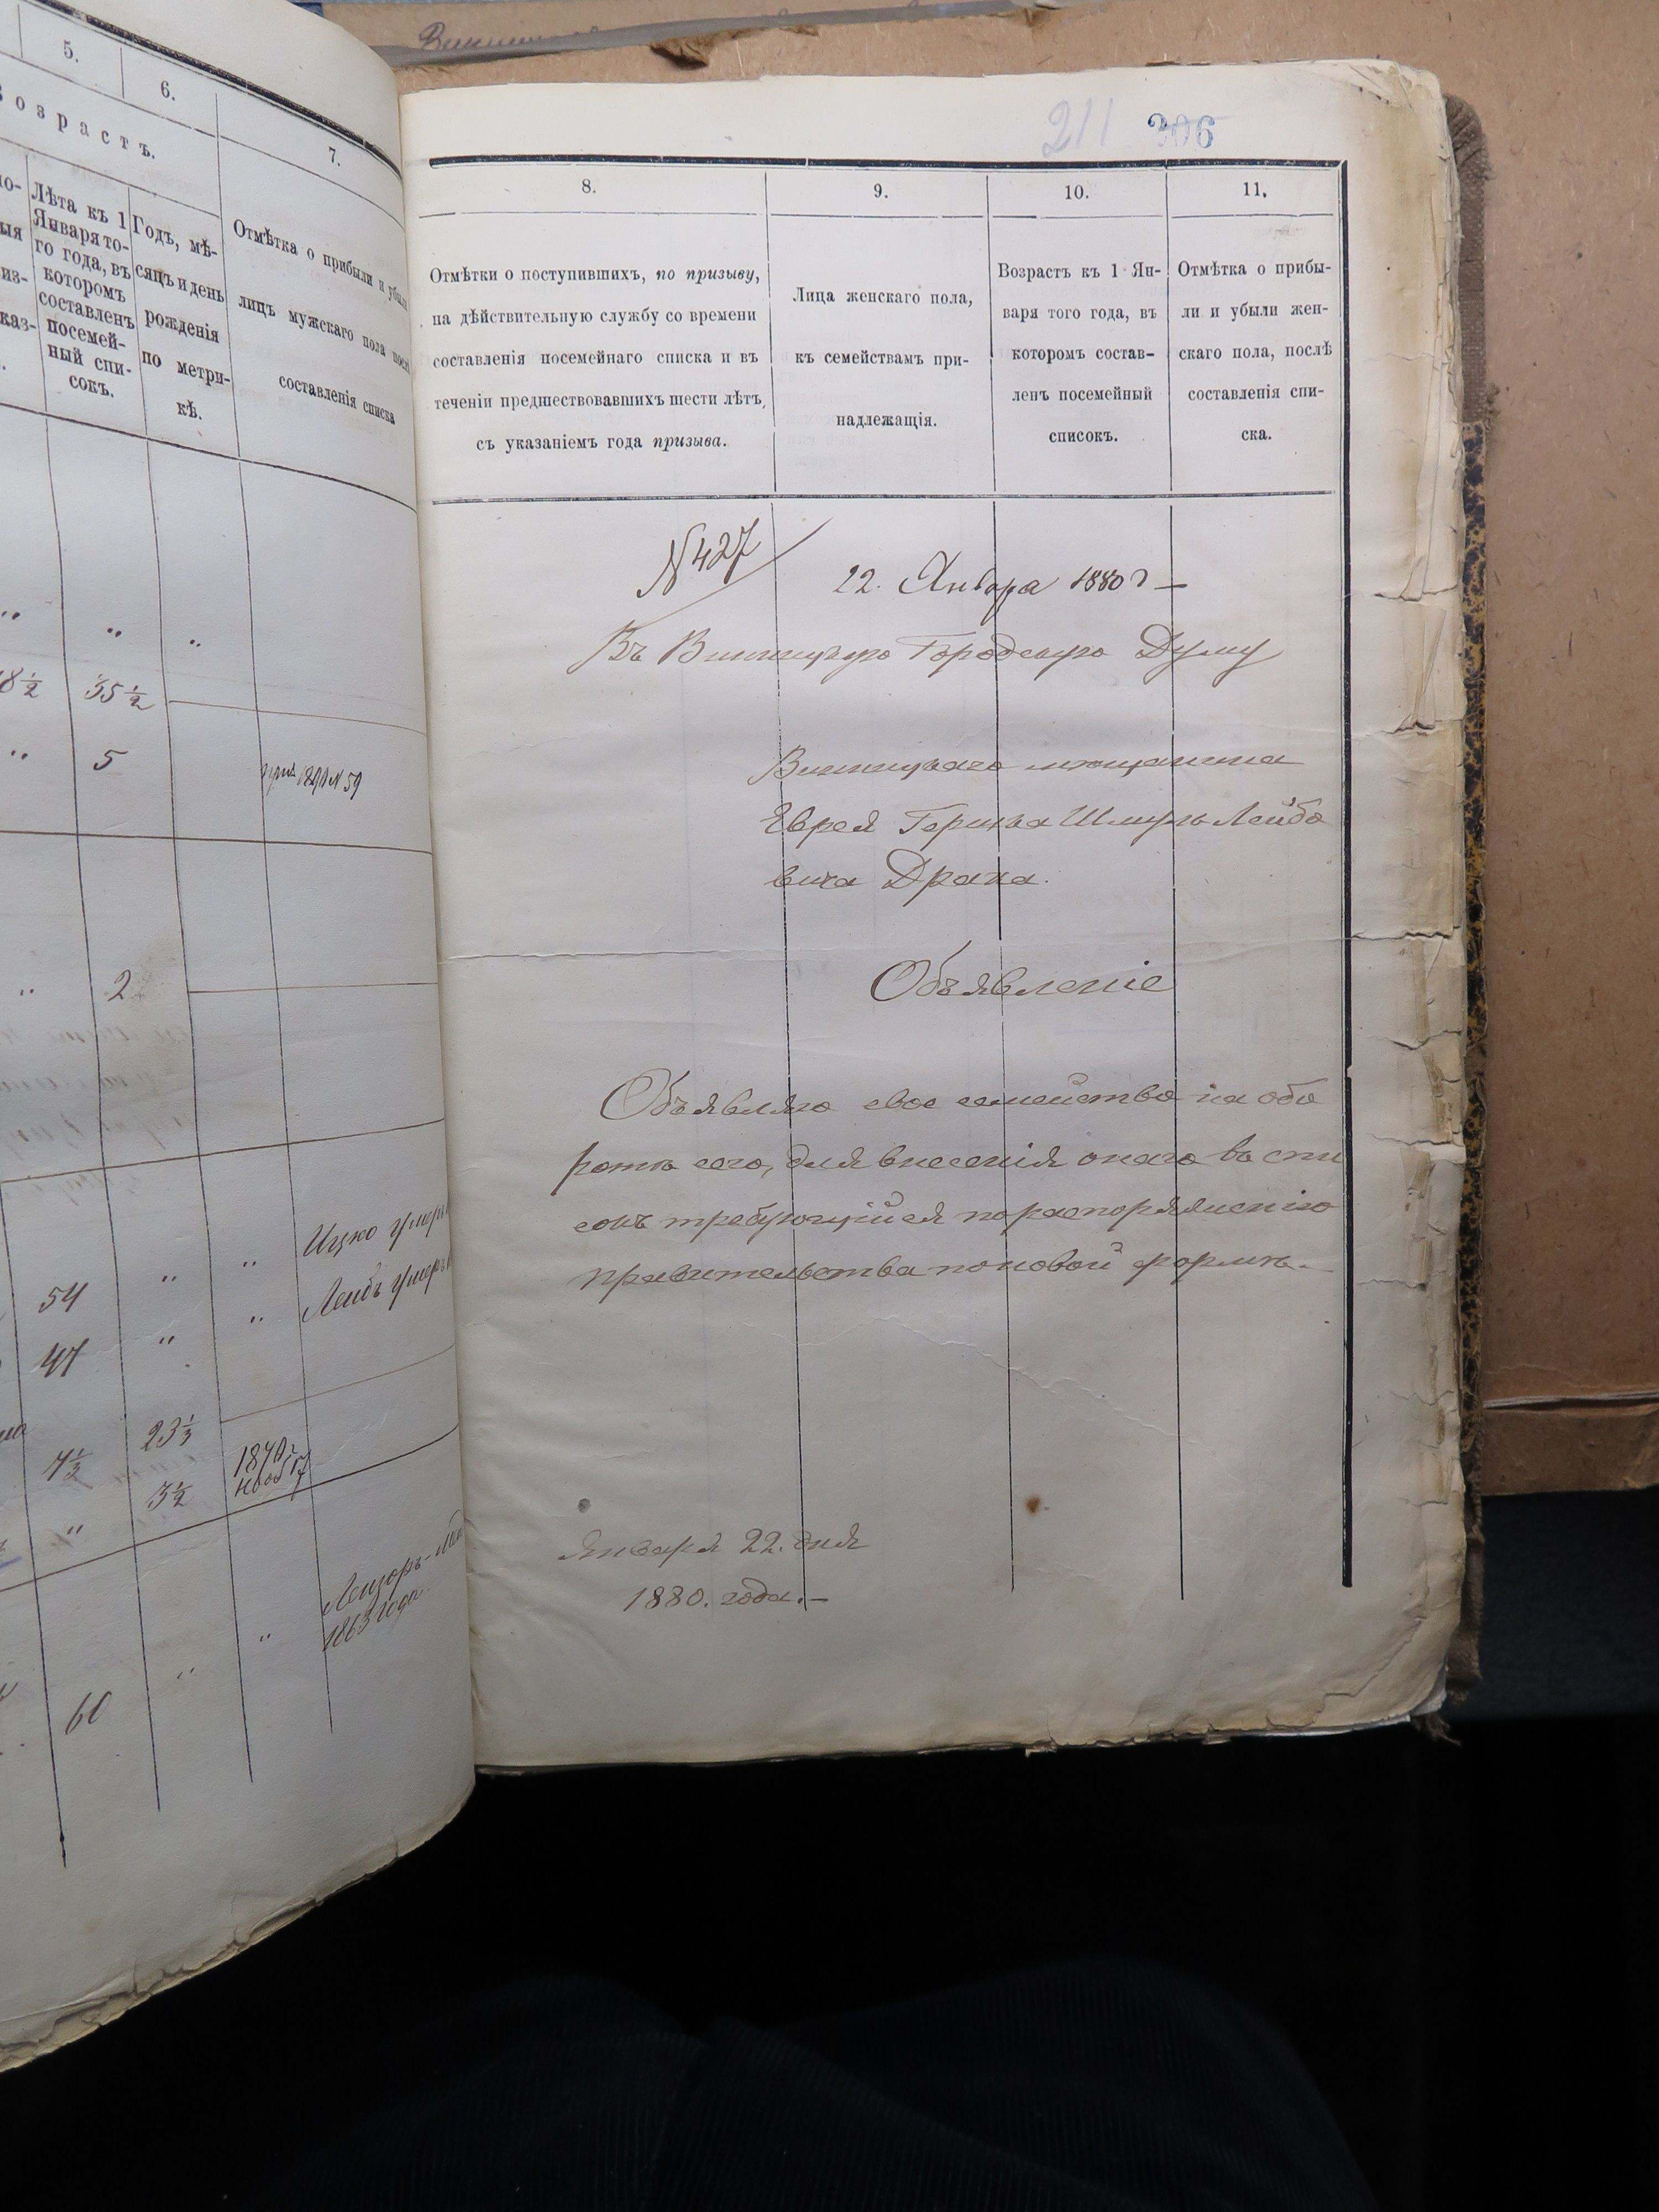 5.
6.
7.
Возрастъ.
Лѣта къ 1
Января то-
го года, въ
которомъ
составленъ
посемей-
ный спи-
сокъ.
Годъ, мѣ-
сяцъ и день
рожденія
по метри-
кѣ.
Отмѣтка о прибыли и убыли
лицъ мужскаго пола послѣ
составленія списка
35 ½
5
1890 № 59
2
Ицко умеръ
54
Лейбъ умеръ
47
23 ½
3 ½
1863 года
211 306
8.
9.
10.
11.
Отмѣтки о поступившихъ, по призыву,
на дѣйствительную службу со времени
составленія посемейнаго списка и въ
теченіи предшествовавшихъ шести лѣтъ,
съ указаніемъ года призыва.
Лица женскаго пола,
къ семействамъ при-
надлежащія.
Возрастъ къ 1 Ян-
варя того года, въ
которомъ состав-
ленъ посемейный
списокъ.
Отмѣтка о прибы-
ли и убыли жен-
скаго пола, послѣ
составленія спи-
ска.
№ 427
22. Января 1880 г —
Въ Винницкую Городскую Думу
Винницкаго мѣщанина
Еврея Гершка Шмуль Лейбо
вича Драка.
Объявленіе
Объявляю свое семейство на обо
ротѣ сего, для внесенія онаго въ спи
сокъ требующійся по распоряженію
правительства по новой формѣ.—
Января 22. дня
1880. года.—